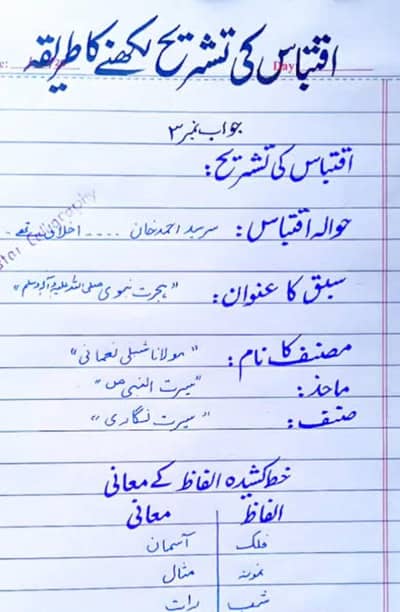 اقتباس کی تشریح لکھنے کا طریقہ
Day
جواب نمبر ۳
اقتباس کی تشریح:
حوالہ اقتباس: سرسید احمد خان .... اخلاق
سبق کا عنوان: "ہجرت نبوی صلی اللہ علیہ وآلہ وسلم"
مصنف کا نام: "مولانا شبلی نعمانی"
ماخذ: "سیرت النبی ص"
صنف: "سیرت نگاری"
خط کشیدہ الفاظ کے معانی
الفاظ معانی
فلک آسمان
نمونہ مثال
شب رات
Calligraphy